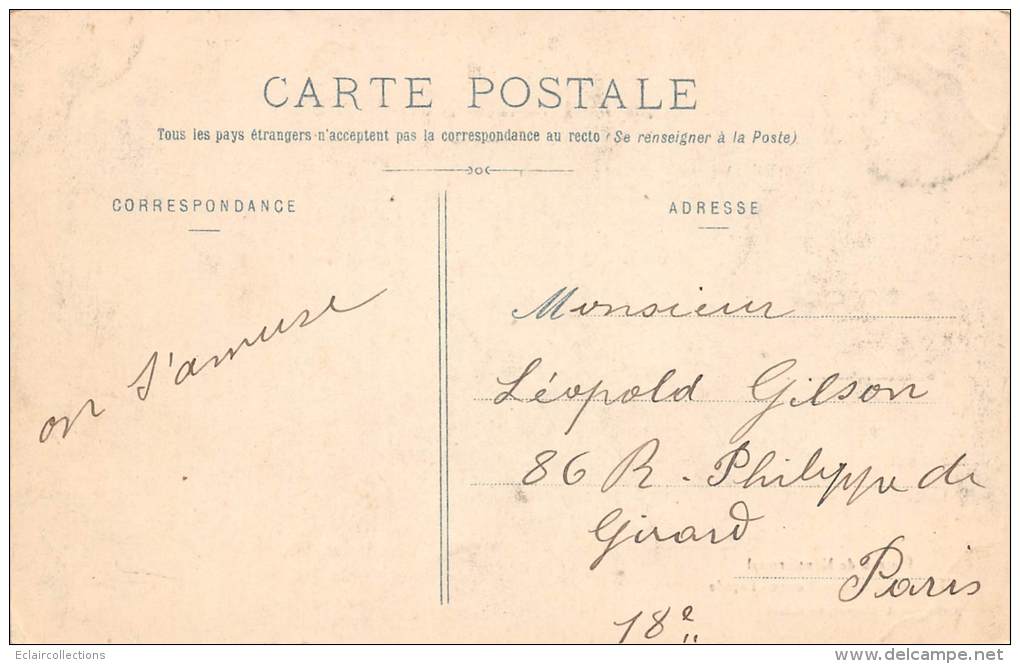 CARTE POSTALE
Tous les pays étrangers n'acceptent pas la correspondance au recto (Se renseigner à la Poste)
CORRESPONDANCE
on s'amuse
ADRESSE
Monsieur
Léopold Gilson
86 R. Philippe de
Girard
Paris
18e
Eclaircollections
delcampe.net